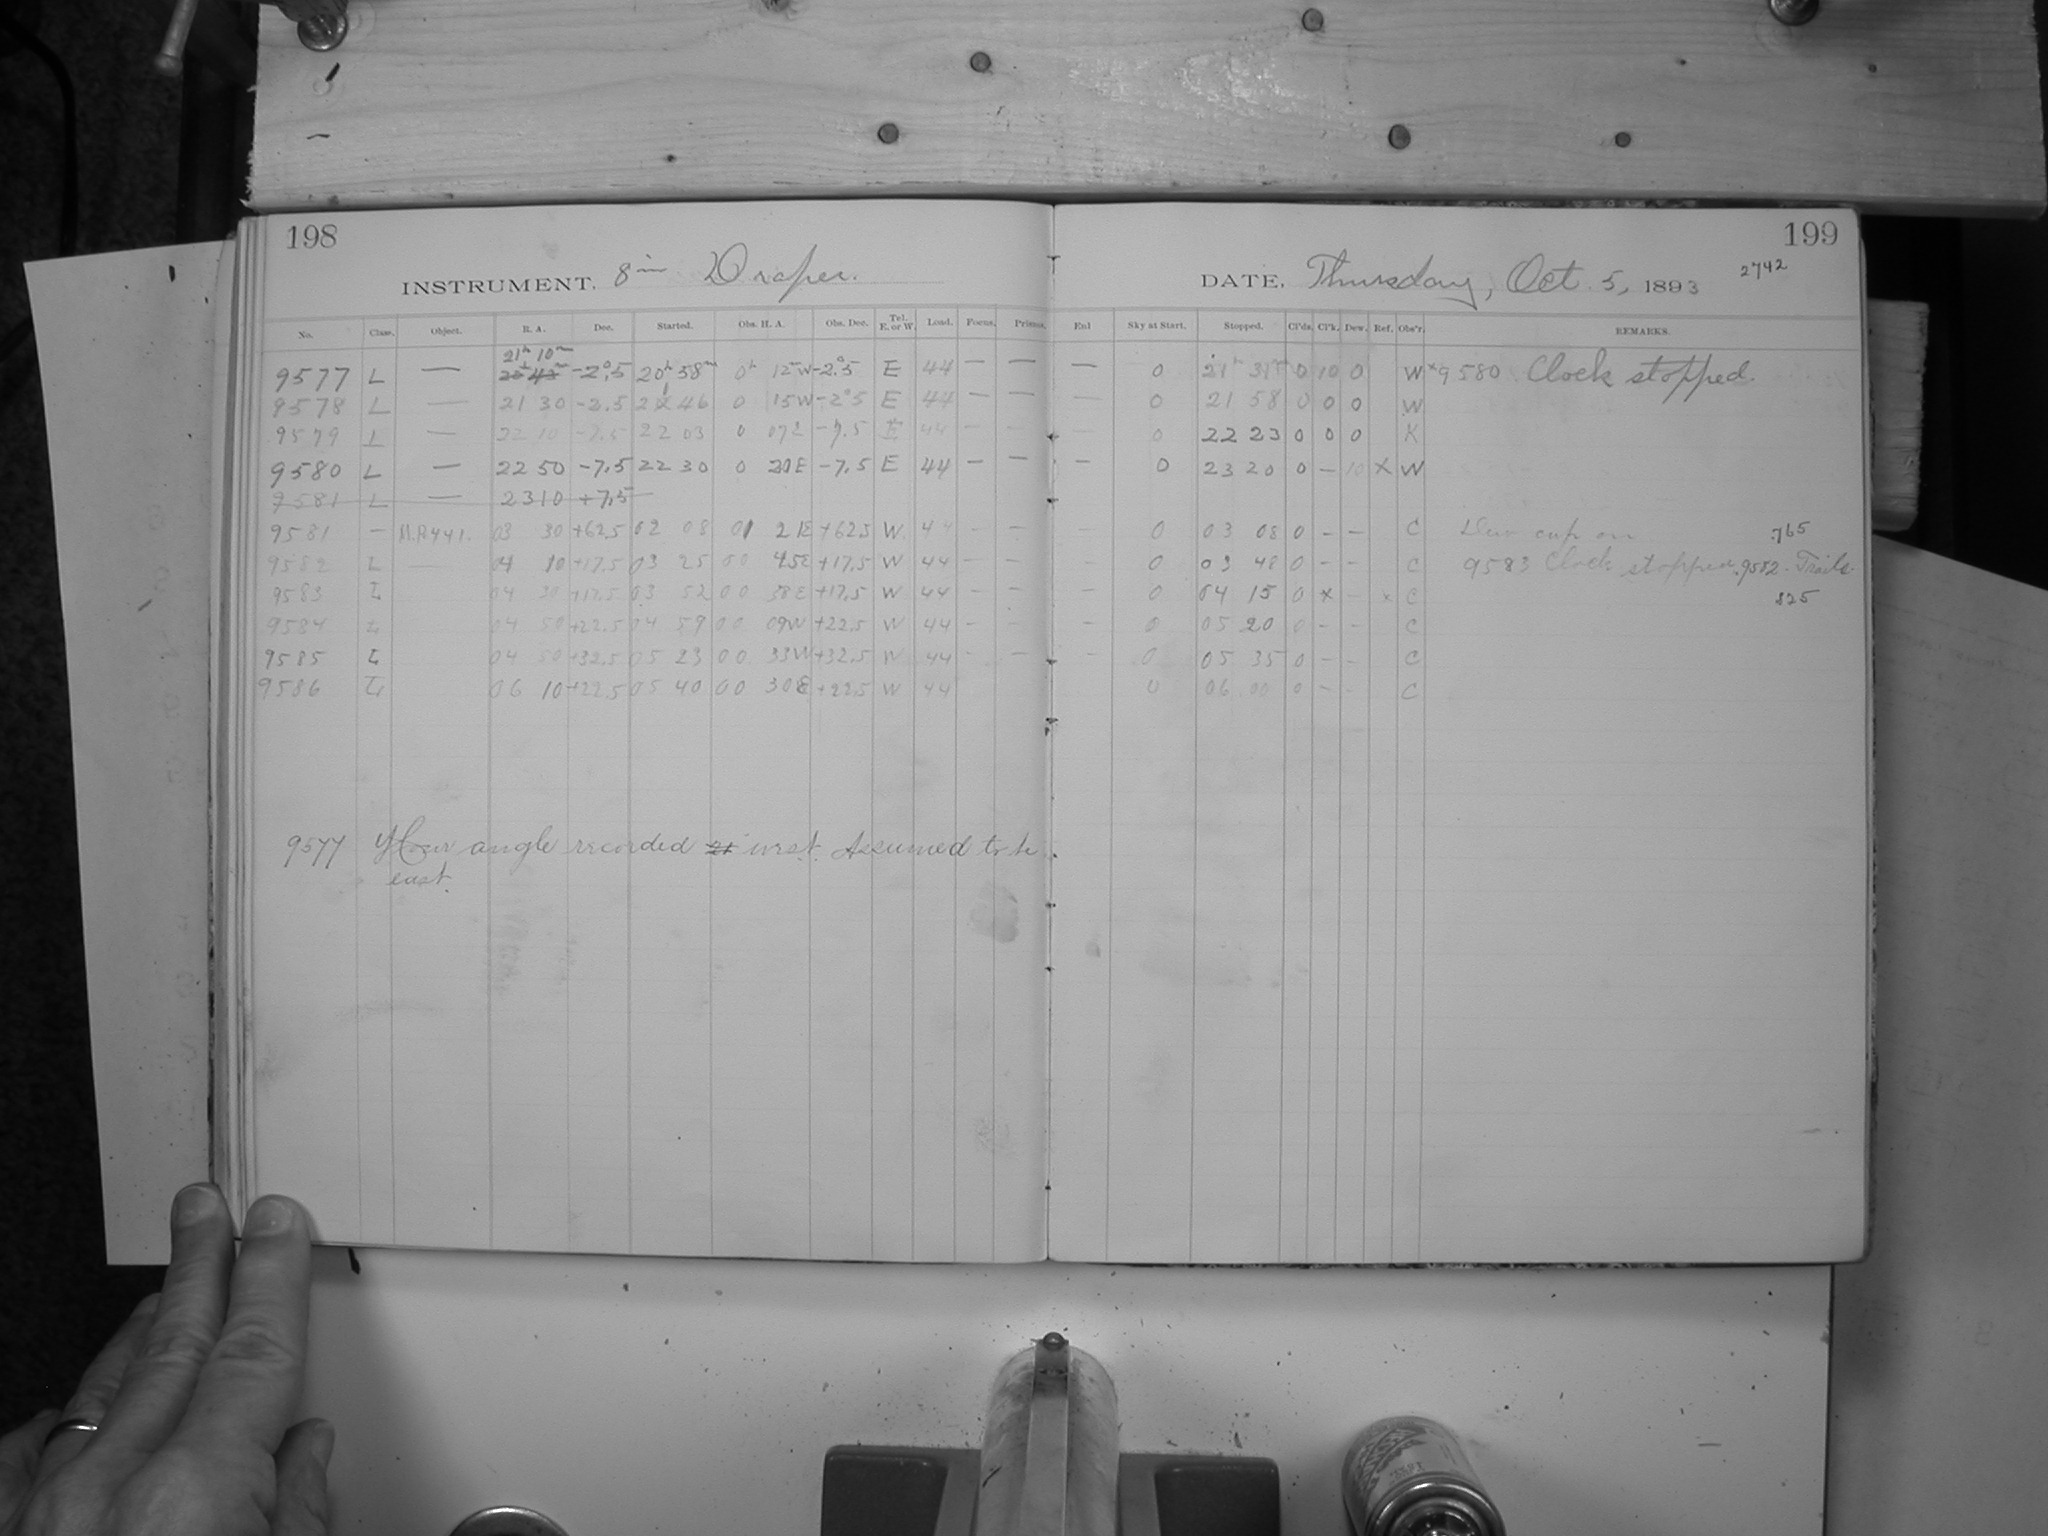 198
199
INSTRUMENT. 8 in Draper.
DATE, Thursday, Oct. 5, 1893
2742
No. Class. Object. R. A. Dec. Started. Obs. H. A. Obs. Dec. Tel. E. or W. Load. Focus. Prisms. Enl Sky at Start. Stopped. Cl'ds. Cl'k. Dew. Ref. Obs'r. REMARKS.
21h 10m
9577 L — -2°.5 20h 58m 0h 12m W -2.5 E 44 — — — 0 21h 31m 0 10 0 W *9580 Clock stopped.
9578 L — 21 30 -2.5 21 46 0 15W -2.5 E 44 — — — 0 21 58 0 0 0 W
9579 L — 22 10 -7.5 22 03 0 07E -7.5 E 44 — — — 0 22 23 0 0 0 K
9580 L — 22 50 -7.5 22 30 0 20E -7.5 E 44 — — — 0 23 20 0 — 10 X W
9581 L — 23 10 +7.5
9581 — 03 30 +62.5 02 08 01 21E +62.5 W. 44 - - - 0 03 08 0 - - C Dew cap on 765
9582 L — 04 10 +17.5 03 25 00 45E +17.5 W 44 - - - 0 03 48 0 - - C 9583 Clock stopped, 9582. Trails.
9583 L 04 30 +17.5 03 52 00 38E +17.5 W 44 - - - 0 04 15 0 x - x C 825
9584 L 04 50 +22.5 04 59 00 09W +22.5 W 44 - - - 0 05 20 0 - - C
9585 L 04 50 +32.5 05 23 00 33W +32.5 W 44 - - - 0 05 35 0 - - C
9586 L 06 10 +22.5 05 40 00 30E +22.5 W 44 0 06 00 0 - - C
9577 Hour angle recorded west. Assumed to be
east.